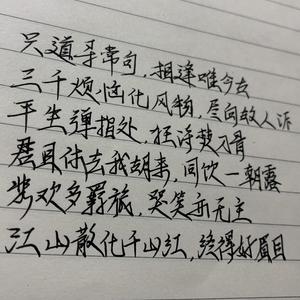 只道寻常句,相逢唯今去
三千烦恼化风物,尽向故人诉
平生弹指处,狂浮梦刁骨
莫具休去我胡来,同饮一朝露
悲欢多羁旅,哭笑亦无主
江山散化千山红,终得好眉目